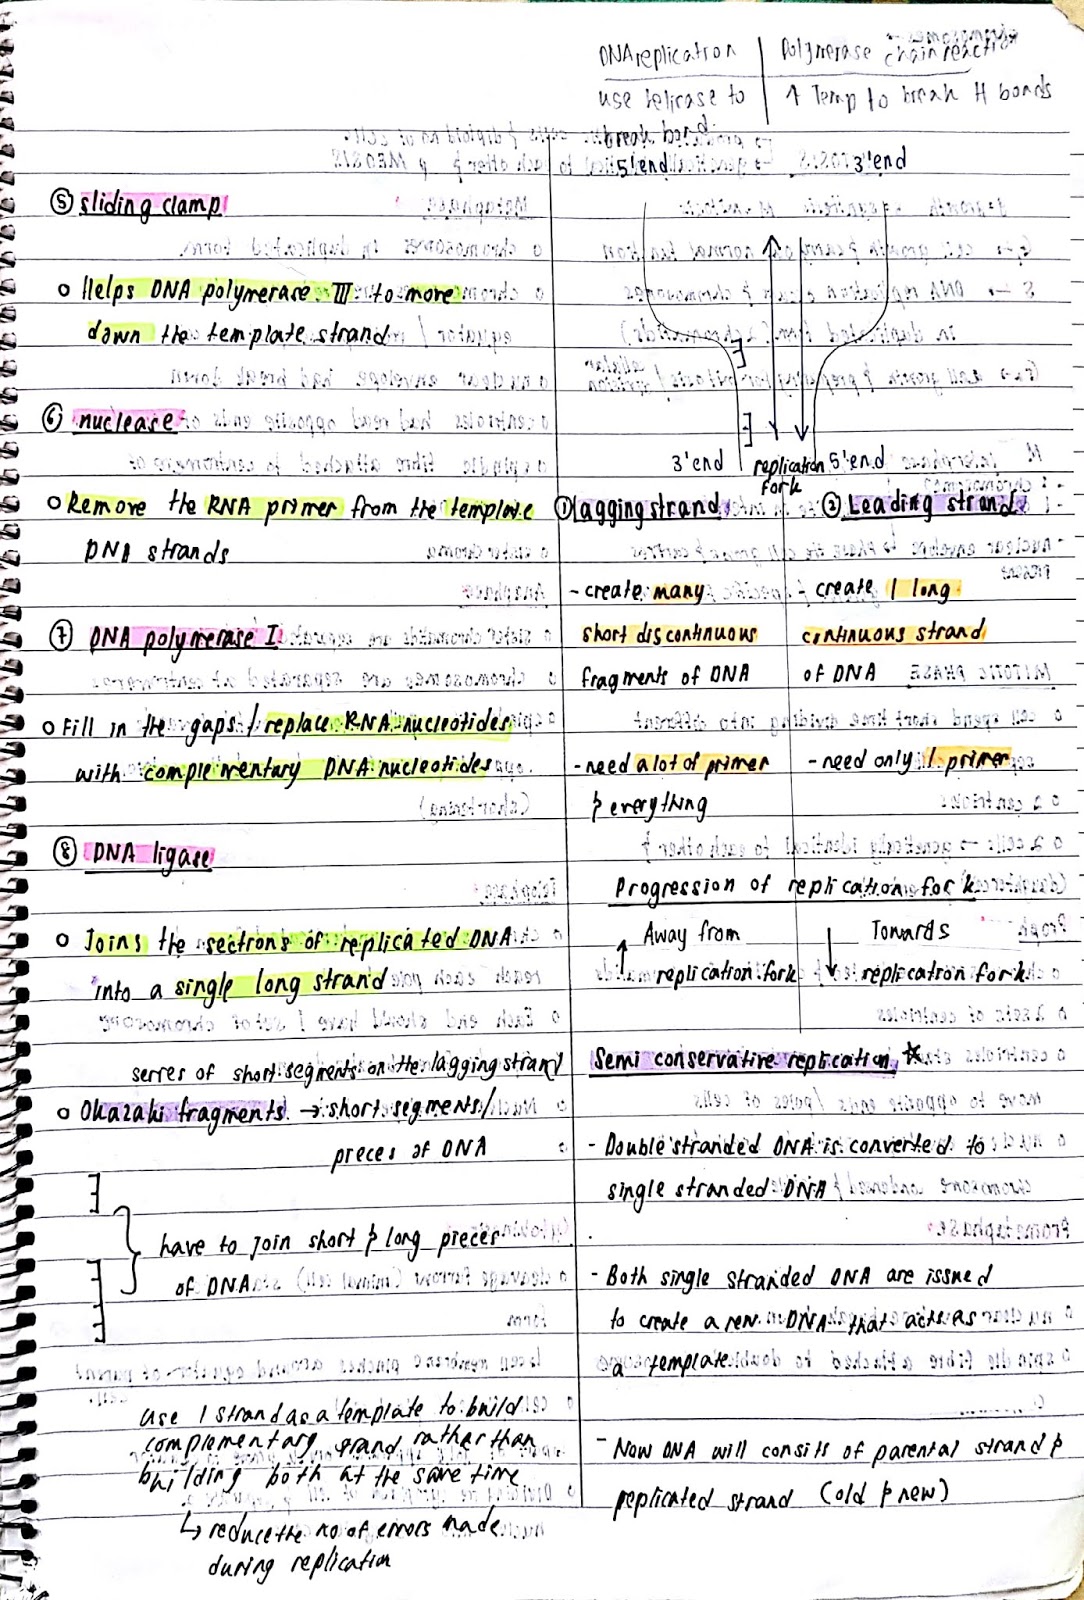 DNA replication | Polymerase chain reaction
use helicase to break bond | ↑ Temp to break H bonds
⑤ sliding clamp
o Helps DNA polymerase III to more
down the template strand
⑥ nuclease
o Remove the RNA primer from the template
DNA strands
⑦ DNA polymerase I
o Fill in the gaps / replace RNA nucleotides
with complementary DNA nucleotides
⑧ DNA ligase
o Joins the sections of replicated DNA
into a single long strand
series of short segments on the lagging strand
o Okazaki fragments → short segments/
pieces of DNA
have to join short & long pieces
of DNA
use 1 strand as a template to build
complementary strand rather than
building both at the same time
↳ reduce the no of errors made
during replication
5' end 3' end
3' end replication fork 5' end
① lagging strand ② Leading strand
- create many - create 1 long
short discontinuous continuous strand
fragments of DNA of DNA
- need a lot of primer - need only 1 primer
& everything
Progression of replication fork
↑ Away from ↓ Towards
replication fork replication fork
Semi conservative replication *
- Double stranded DNA is converted to
single stranded DNA
- Both single stranded DNA are issued
to create a new DNA that acts as
a template
- Now DNA will consits of parental strand &
replicated strand (old & new)